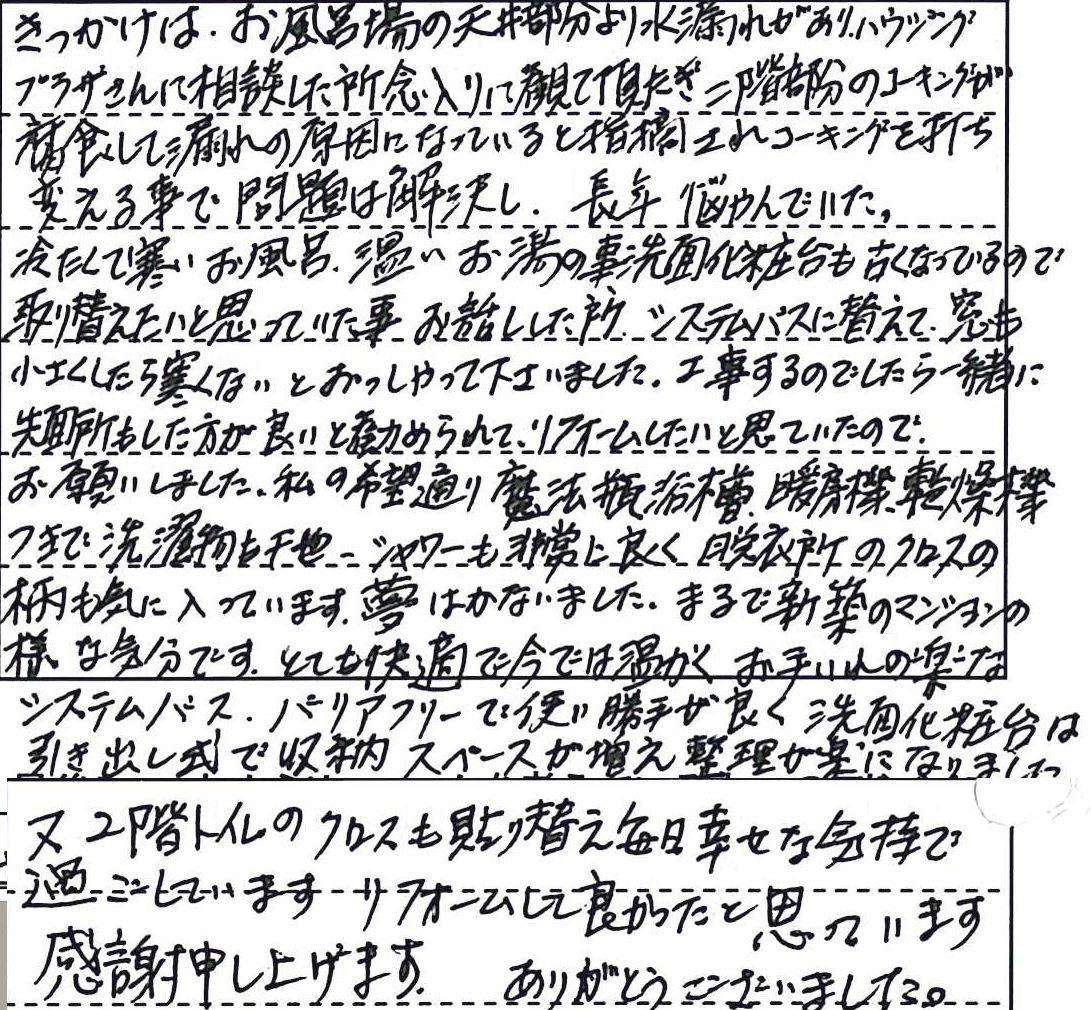 きっかけは、お風呂場の天井部分より水漏れがあり、ハウジング
プラザさんに相談した所念入りに観て頂だき二階部分のコーキングが
腐食して漏れの原因になっていると指摘されコーキングを打ち
変える事で問題は解決し、長年悩やんでいた。
冷たくて寒いお風呂、温いお湯の事洗面化粧台も古くなっているので
取り替えたいと思っていた事お話しした所、システムバスに替えて、窓も
小さくしたら寒くないとおっしゃって下さいました。工事するのでしたら一緒に
洗面所もした方が良いと勧められて、リフォームしたいと思ていたので、
お願いしました。私の希望通り魔法瓶浴槽、暖房機、乾燥機
つきで洗濯物も干せ、シャワーも非常に良く脱衣所のクロスの
柄も気に入っています。夢はかないました。まるで新築のマンションの
様な気分です。とても快適で今では温かくお手いれの楽な
システムバス、バリアフリーで使い勝手が良く洗面化粧台は
引き出し式で収納スペースが増え整理が楽になりました
又2階トイレのクロスも貼り替え毎日幸せな気持で
過ごしていますリフォームして良かったと思っています
感謝申し上げます。ありがとうございました。